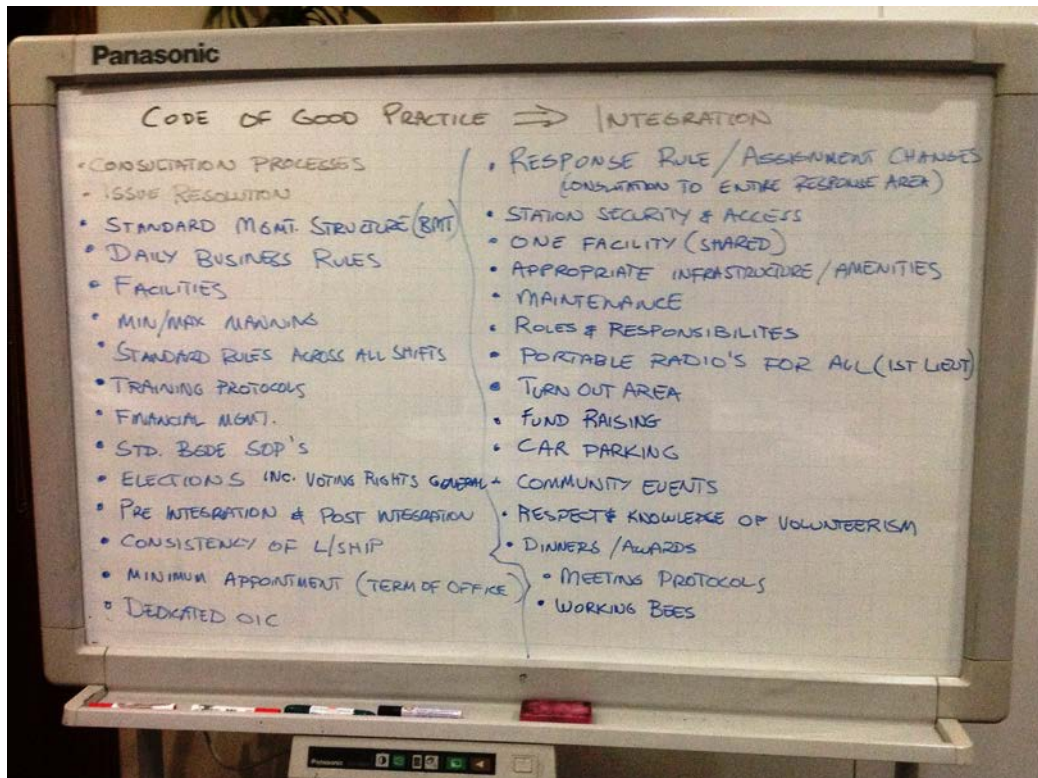 Panasonic
CODE OF GOOD PRACTICE ⇒ INTEGRATION
- CONSULTATION PROCESSES
- ISSUE RESOLUTION
• STANDARD MGMT. STRUCTURE (BMT)
• DAILY BUSINESS RULES
• FACILITIES
• MIN/MAX MANNING
• STANDARD RULES ACROSS ALL SHIFTS
• TRAINING PROTOCOLS
• FINANCIAL MGMT.
• STD. BGDE SOP'S
• ELECTIONS INC. VOTING RIGHTS GENERAL
• PRE INTEGRATION & POST INTEGRATION
• CONSISTENCY OF L/SHIP
• MINIMUM APPOINTMENT (TERM OF OFFICE)
• DEDICATED OIC
• RESPONSE RULE / ASSIGNMENT CHANGES
(CONSULTATION TO ENTIRE RESPONSE AREA)
• STATION SECURITY & ACCESS
• ONE FACILITY (SHARED)
• APPROPRIATE INFRASTRUCTURE / AMENITIES
• MAINTENANCE
• ROLES & RESPONSIBILITES
• PORTABLE RADIO'S FOR ALL (1ST LIEUT)
• TURN OUT AREA
• FUND RAISING
• CAR PARKING
• COMMUNITY EVENTS
• RESPECT & KNOWLEDGE OF VOLUNTEERISM
• DINNERS / AWARDS
• MEETING PROTOCOLS
• WORKING BEES
Panasonic